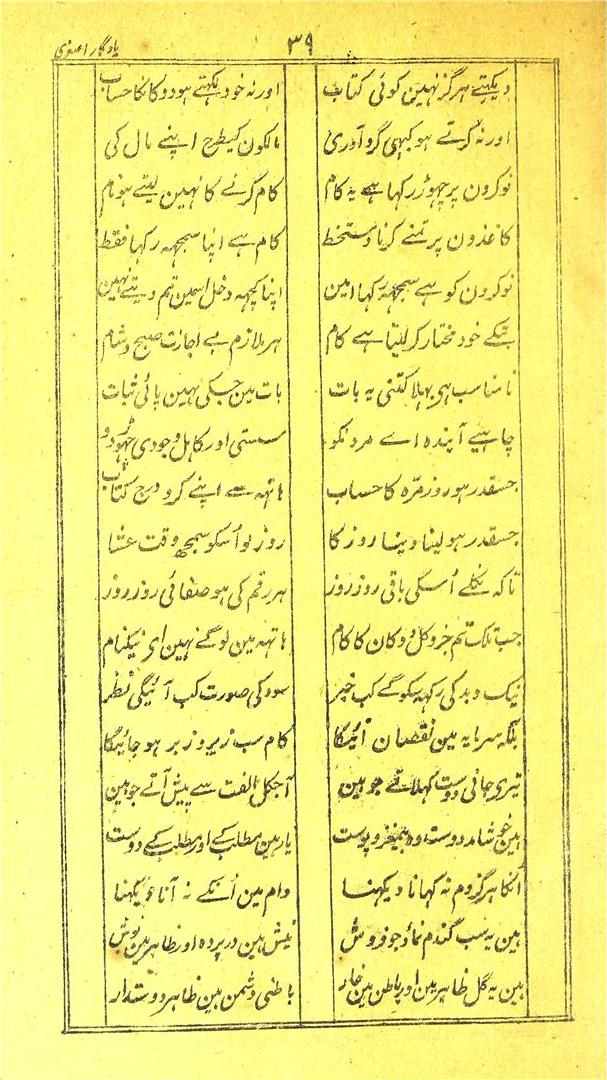 ۳۹
یادگار اصغری
دیکہتے ہرگز نہین کوئی کتاب
اور نہ خود لکہتے ہو دوکانکا حساب
اور نہ کرتے ہو کبہی گرد آوری
مالکون کیطرح اپنے مال کی
نوکرون پر چہوڑ رکہا ہے یہ کام
کام کرنے کا نہین لیتے ہو نام
کاغذون پر تمنے کرنا دستخط
کام ہے اپنا سمجہہ رکہا فقط
نوکرون کو ہے سمجہہ رکہا امین
اپنا کچہہ دخل اسمین تم دیتے نہین
بنکے خود مختار کر لیتا ہے کام
ہر ملازم بے اجازت صبح و شام
نامناسب ہی بہلا کتنی یہ بات
بات مین جسکی نہین پائی ثبات
چاہیے آیندہ اے مرد نکو
سستی اور کاہل وجودی چہوڑ دو
جسقدر ہو روزمرّہ کا حساب
ہاتہہ سے اپنے کرو درج کتاب
جسقدر ہو لینا دینا روز کا
روز لو اُسکو سمجھ وقت عشا
تاکہ نکلے اُسکی باقی روز روز
ہر رقم کی ہو صفائی روز روز
جب تلک تم جزو کل دوکان کا کام
ہاتہہ مین لوگے نہین ای نیکنام
نیک و بد کی رکہہ سکوگے کب خبر
سود کی صورت کب آئیگی نظر
بلکہ سرمایہ مین نقصان آئیگا
کام سب زیر و زبر ہو جائیگا
تیری جانی دوست کہلاتے جو ہین
آجکل الفت سے پیش آتے جو ہین
ہین خوشامد دوست وہ بیمغز و پوست
یار ہین مطلب کے اور مطلب کے دوست
اُنکا ہرگز دم نہ کہانا دیکہنا
دام مین اُنکے نہ آنا دیکہنا
ہین یہ سب گندم نما و جو فروش
نیش ہین در پردہ اور ظاہر مین نوش
ہین یہ گل ظاہر مین اور باطن مین خار
باطنی دشمن ہین ظاہر دوستدار